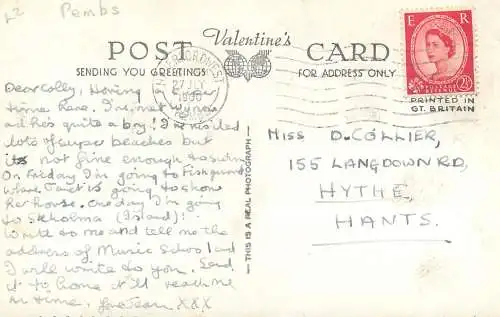 L2 Pembs
Valentine's
POST CARD
SENDING YOU GREETINGS
FOR ADDRESS ONLY
HAVERFORDWEST
27 JLY
E R
POSTAGE REVENUE
2½D
PRINTED IN
GT. BRITAIN
Dear Colly, Having a super
time here. I've met
and he's quite a boy! I've visited
lots of super beaches but
its not fine enough to swim
On Friday I'm going to Fishguard
where Janet is going to show
her house. One day I'm going
to Skholma (Island)!
Write to me and tell me the
address of Music School and
I will write to you. Send
it to home it'll reach me
in time. Love Jean XXX
THIS IS A REAL PHOTOGRAPH
MISS D. COLLIER,
155 LANGDOWN RD,
HYTHE,
HANTS.